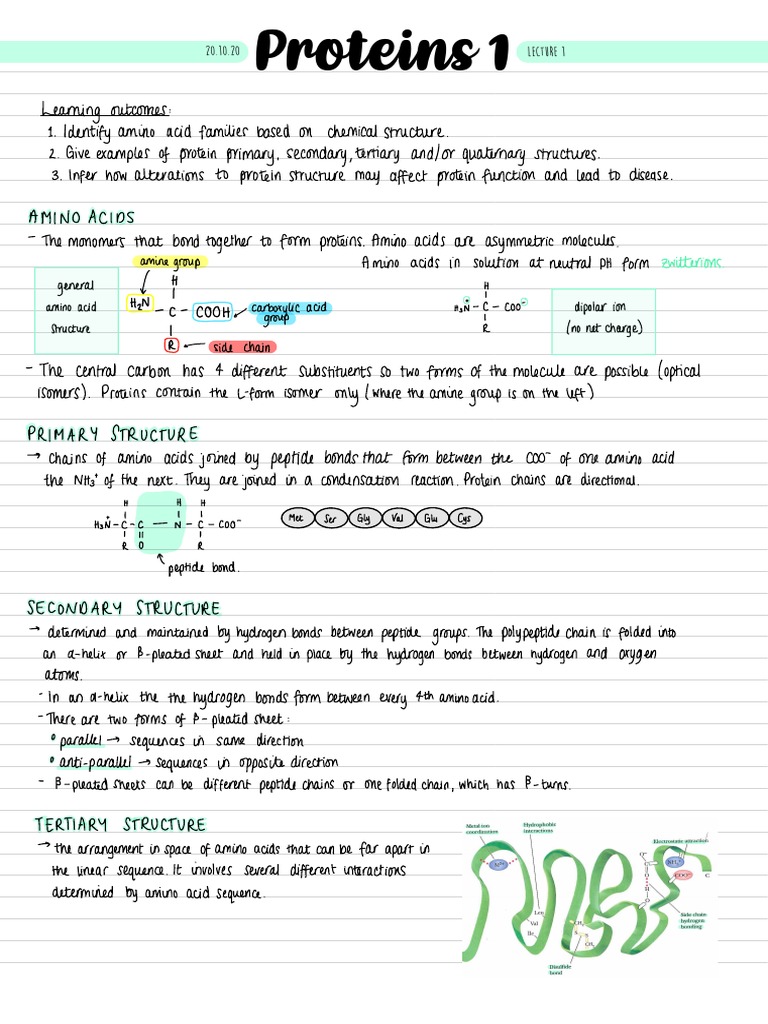 20.10.20 Proteins 1 LECTURE 1
Learning outcomes:
1. Identify amino acid families based on chemical structure.
2. Give examples of protein primary, secondary, tertiary and/or quaternary structures.
3. Infer how alterations to protein structure may affect protein function and lead to disease.
AMINO ACIDS
- The monomers that bond together to form proteins. Amino acids are asymmetric molecules.
amine group
Amino acids in solution at neutral pH form zwitterions.
general
amino acid
structure
H
H₂N - C - COOH
R
carboxylic acid
group
side chain
H
H₃N⁺ - C - COO⁻
R
dipolar ion
(no net charge)
- The central carbon has 4 different substituents so two forms of the molecule are possible (optical
isomers). Proteins contain the L-form isomer only (where the amine group is on the left)
PRIMARY STRUCTURE
→ chains of amino acids joined by peptide bonds that form between the COO⁻ of one amino acid
the NH₃⁺ of the next. They are joined in a condensation reaction. Protein chains are directional.
H H H
H₃N⁺ - C - C — N - C - COO⁻
R O R
peptide bond.
Met Ser Gly Val Glu Cys
SECONDARY STRUCTURE
→ determined and maintained by hydrogen bonds between peptide groups. The polypeptide chain is folded into
an α-helix or β-pleated sheet and held in place by the hydrogen bonds between hydrogen and oxygen
atoms.
- In an α-helix the the hydrogen bonds form between every 4th amino acid.
- There are two forms of β-pleated sheet:
• parallel → sequences in same direction
• anti-parallel → sequences in opposite direction
- β-pleated sheets can be different peptide chains or one folded chain, which has β-turns.
TERTIARY STRUCTURE
→ the arrangement in space of amino acids that can be far apart in
the linear sequence. It involves several different interactions
determined by amino acid sequence.
Metal ion
coordination
Hydrophobic
interactions
Electrostatic attraction
NH₃⁺
COO⁻
C
O
H
O
Leu
Val
Ile
CH₂
S
S
CH₂
Side chain
hydrogen
bonding
Disulfide
bond